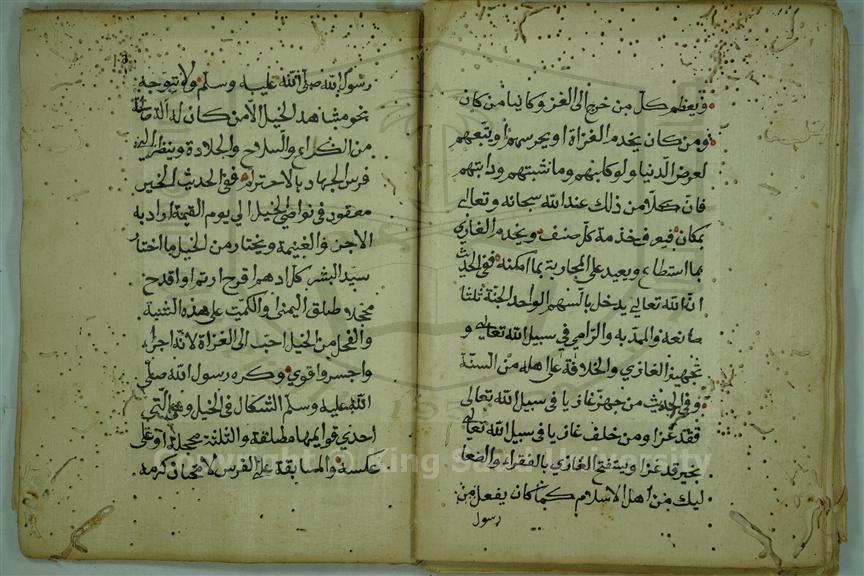 ويعظم كل من خرج الى الغزو كائنا من كان
ومن كان يخدم الغزاة او يحرسهم او يتبعهم
لعرض الدنيا ولو كلبهم وماشيتهم ودابتهم
فان كلا من ذلك عند الله سبحانه وتعالى
بمكان فيه خدمة كل صنف ويخدم الغازي
بما استطاع ويعيد على المحاربة بما امكنه ففي الحديث
ان الله تعالى يدخل بالسهم الواحد الجنة ثلثا
صانعه والممد به والرامي في سبيل الله تعالى و
تجهيز الغازي والخلافة على اهله من السنة
وفي الحديث من جهز غازيا في سبيل الله تعالى
فقد غزا ومن خلف غازيا في سبيل الله تعالى
بخير قد غزا ويستفتح الغازي بالفقراء والصعا
ليك من اهل الاسلام كما كان يفعل من
رسول
رسول الله صلى الله عليه وسلم ولا يتوجه
نحو مشاهد الخيل الا من كان له آلة
من الكراع والسلاح والجلادة وينظر الى
فرس الجهاد بالاحترام ففي الحديث الخير
معقود في نواصي الخيل الي يوم القيمة اراد به
الاجر والغنيمة ويختار من الخيل ما اختار
سيد البشر كل ادهم اقرح ارثم او اقدح
محجلا طلق اليمنى والكميت على هذه الشية
والفحل من الخيل احب الى الغزاة لانه اجرا
واجسر واقوي وكره رسول الله صلى
الله عليه وسلم الشكال في الخيل وهي التي
احدي قوايمها مطلقة والثلثة محجلة او على
عكسه والمسابقة على الفرس لامتحان كرمه
© King Saud University